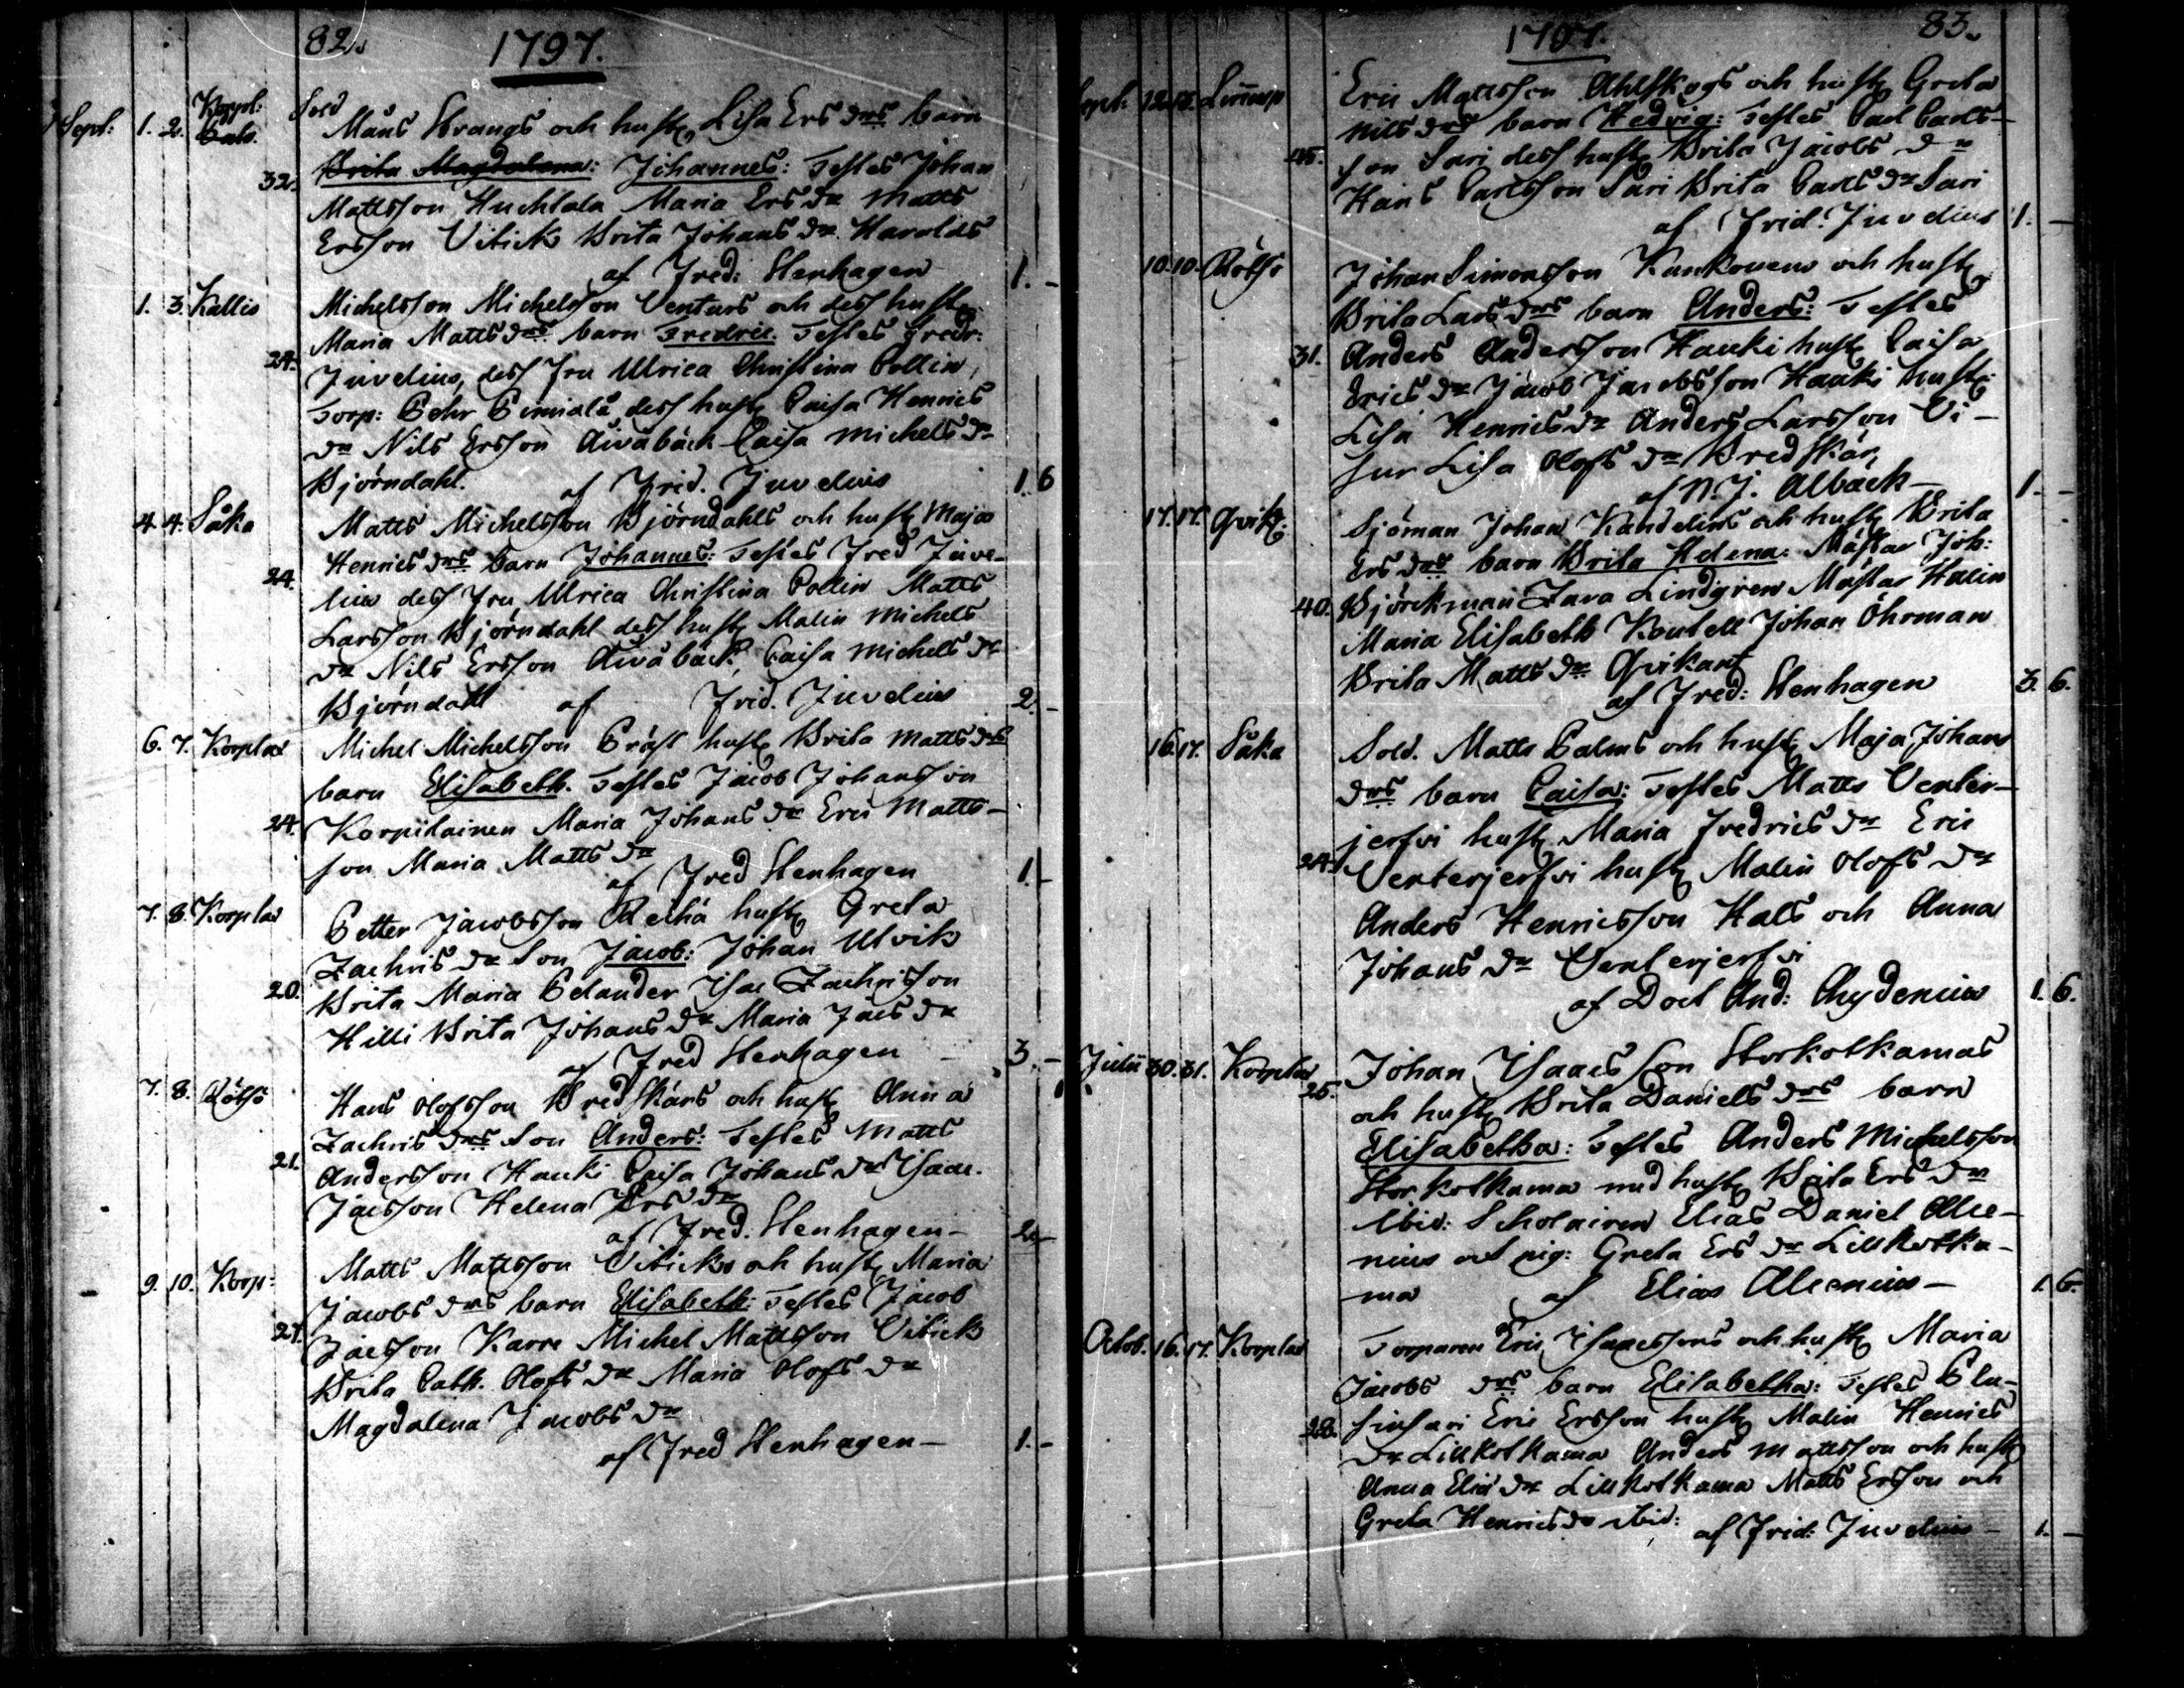 82.
1797.
Sept: 1. 2. Korpl: Cals.
Sold
Måns Strangs och hust. Lisa Ers drs barn
32. Brita Magdalena: Johannes: Testes Johan
Mattsson Huchlala Maria Ers dr Matts
Ersson Vitick Brita Johans dr Haralds
af Fred: Stenhagen 1. -
1. 3. Kallis
Michelsson Michelsson Venturs och dess hust.
Maria Matts drs barn Fredric. Testes Fredr:
24. Juvelius, dess Fru Ulrica Christina Pollin,
Torp: Pehr Pimialä dess hust. Caisa Henrics
dr Nils Ersson Äiväbäck Caisa Michels dr
Björndahl. af Frid. Juvelius 1. 6
4. 4. Såka
Matts Michelsson Björndahls och hust. Maja
Henrics drs barn Johannes: Testes Fred Juve-
24. lius dess Fru Ulrica Christina Pollin Matts
Larsson Björndahl dess hust. Malin Michels
dr Nils Ersson Äiväbäck Caisa Michels dr
Björndahl af Frid. Juvelius 2. -
6. 7. Korplax
Michel Michelsson Präst hust. Brita Matts drs
barn Elisabeth. Testes Jacob Johansson
24. Korpilainen Maria Johans dr Eric Matts-
son Maria Matts dr
af Fred Stenhagen 1. -
7. 8. Korplax
Petter Jacobsson Reihä hust. Greta
Zachris dr Son Jacob: Johan Ulvik
20. Brita Maria Pelander Isac Zachrisson
Hilli Brita Johans dr Maria Jacs dr
af Fred Stenhagen - 3. -
7. 8. Rötsö
Hans Olofsson Bredskärs och hust. Anna
Zachris drs Son Anders: Testes Matts
21. Andersson Hauki Caisa Johans dr Isaac.
Jacsson Helena Ers dr
af Fred. Stenhagen - 2. -
9. 10. Korp:
Matts Mattsson Viticks och hust. Maria
Jacobs drs barn Elisabeth: Testes Jacob
27. Jacsson Karre Michel Mattsson Vitick
Brita Cath. Olofs dr Maria Olofs dr
Magdalena Jacobs dr
af Fred Stenhagen - 1. -
1797.
83.
Sept:
Eric Mattsson Ahlskogs och hust. Greta
Nils drs barn Hedvig: Testes Carl Carls-
45. son Sari dess hust. Brita Jacobs dr
Hans Carlsson Sari Brita Carls dr Sari
af Frid. Juvelius 1. -
10. 10. Rötsö
Johan Simonsson Kankonens och hust.
Brita Lars drs barn Anders: Testes
31. Anders Andersson Hauki hust. Caisa
Erics dr Jacob Jacobsson Hauki hust.
Lisa Henrics dr Anders Larsson Vi-
sur Lisa Olofs dr Bredskär,
af N. J. Alback - 1. -
17. 17. Qvik.
Sjöman Johan Kandelins och hust. Brita
Ers drs barn Brita Helena: Mästar Joh:
40. Björckman Zara Lindgren Mästar Halin
Maria Elisabeth Kontell Johan Öhrman
Brita Matts dr Qvikant
af Fred: Stenhagen 3. 6.
16. 17. Såka
Sold. Matts Palms och hust. Maja Johans
drs barn Caisa: Testes Matts Venter-
jerfvi hust. Maria Fredrics dr Eric
24. Venterjerfvi hust. Malin Olofs dr
Anders Henricsson Hals och Anna
Johans dr Venterjerfvi
af Doct And: Chydenius 1. 6.
Julii 30. 31. Korplax
25. Johan Isaacsson Storkotkamas
och hust. Brita Daniels drs barn
Elisabetha: Testes Anders Michelsson
Storkotkama med hust. Brita Ers dr
ibid: Scholairen Elias Daniel Alce-
nius och pig: Greta Ers dr Lillkotka-
ma af Elias Alcenius - 1. 6.
Octob. 16. 17. Korplax
Torparen Eric Isaacssons och hust. Maria
Jacobs drs barn Elisabetha: Testes Plu-
28. sinsari Eric Ersson hust. Malin Henrics
dr Lillkotkama Anders Mattsson och hust.
Anna Elis dr Lillkotkama Matts Ersson och
Greta Henrics dr ibid:
af Frid: Juvelius - 1. -